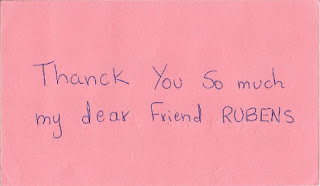 Thanck You So much
my dear Friend RUBENS